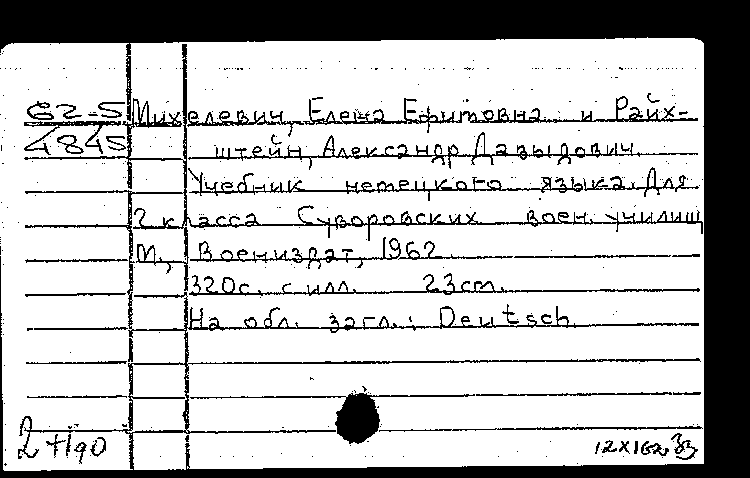 62-5
4845
Михелевич, Елена Ефимовна и Райх-
штейн, Александр Давыдович.
Учебник немецкого языка. Для
2 класса Суворовских воен. училищ
М., Воениздат, 1962.
320с. с илл. 23см.
На обл. загл.: Deutsch.
12X162